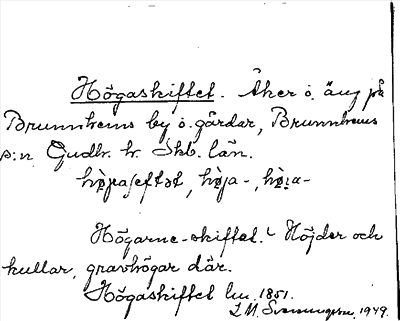 Högaskiftet. Åker o. äng på
Brunnhems by o. gårdar, Brunnhems
s:n Gudh. hr. Skb. län.
hö̀gaʃeftət, hö̀ja-, hö̀ıa-
Högarne-skiftet. Höjder och
kullar, gravhögar där.
Högaskiftet lm. 1851.
L.M. Svenungsson, 1949.